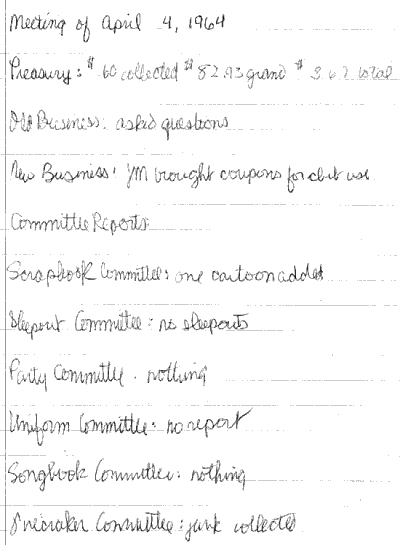 Meeting of April 4, 1964
Treasury: $ .60 collected $ 82.93 grand $ 3.67 total
Old Business: asked questions
New Business: YM brought coupons for club use
Committee Reports:
Scrapbook Committee: one cartoon added
Sleepout Committee: no sleepouts
Party Committee. nothing
Uniform Committee: no report
Songbook Committee: nothing
Committee: junk collected